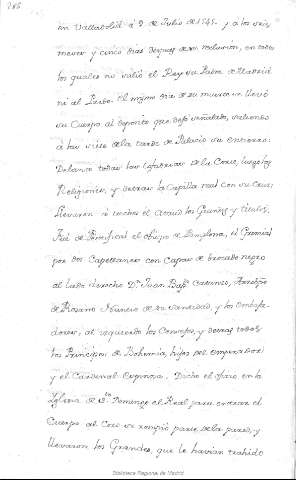 286
en Valladolid à 8 de Julio de 1545. y à los seis
meses y cinco dias despues de su reclusion, en todos
los quales no salió el Rey su Padre de Madrid
ni al Pardo. El mismo dia de su muerte se llevó
su Cuerpo al deposito que dejó señalado, saliendo
à las siete de la tarde de Palacio su entierro:
Delante todas las Cofadrias de la Corte, luego las
Religiones, y detras la Capilla real con su Cruz.
Llevaron à cuestas el Ataud los Grandes y titulos.
Fué de Pontifical el obispo de Pamplona, el Gremial
por dos Capellanes con Capas de brocado negro
al lado derecho Dn. Juan Bapta. Arzobpo
de Rosano Nuncio de su Santidad, y los embaja-
dores, al izquierdo los Consejos, y detras todos
los Principes de Bohemia, hijos del emperador
y el Cardenal Espinosa. Dicho el oficio en la
Iglesia de Sto. Domingo el Real para entrar el
Cuerpo al Coro se rompió parte de la pared, y
llevaron los Grandes, que le havian trahido
Biblioteca Regional de Madrid